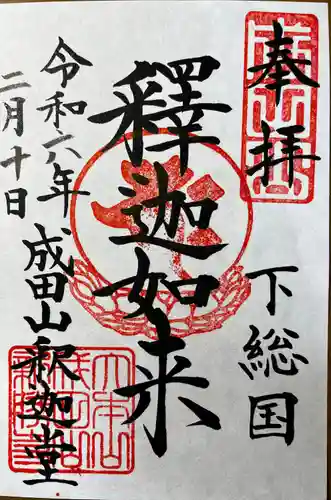 奉拝
下総国
釋迦如来
令和六年
二月十日
成田山釈迦堂